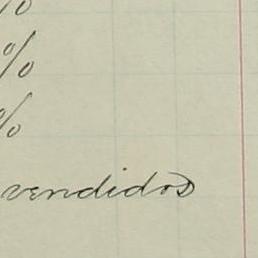 %
%
%
vendidos